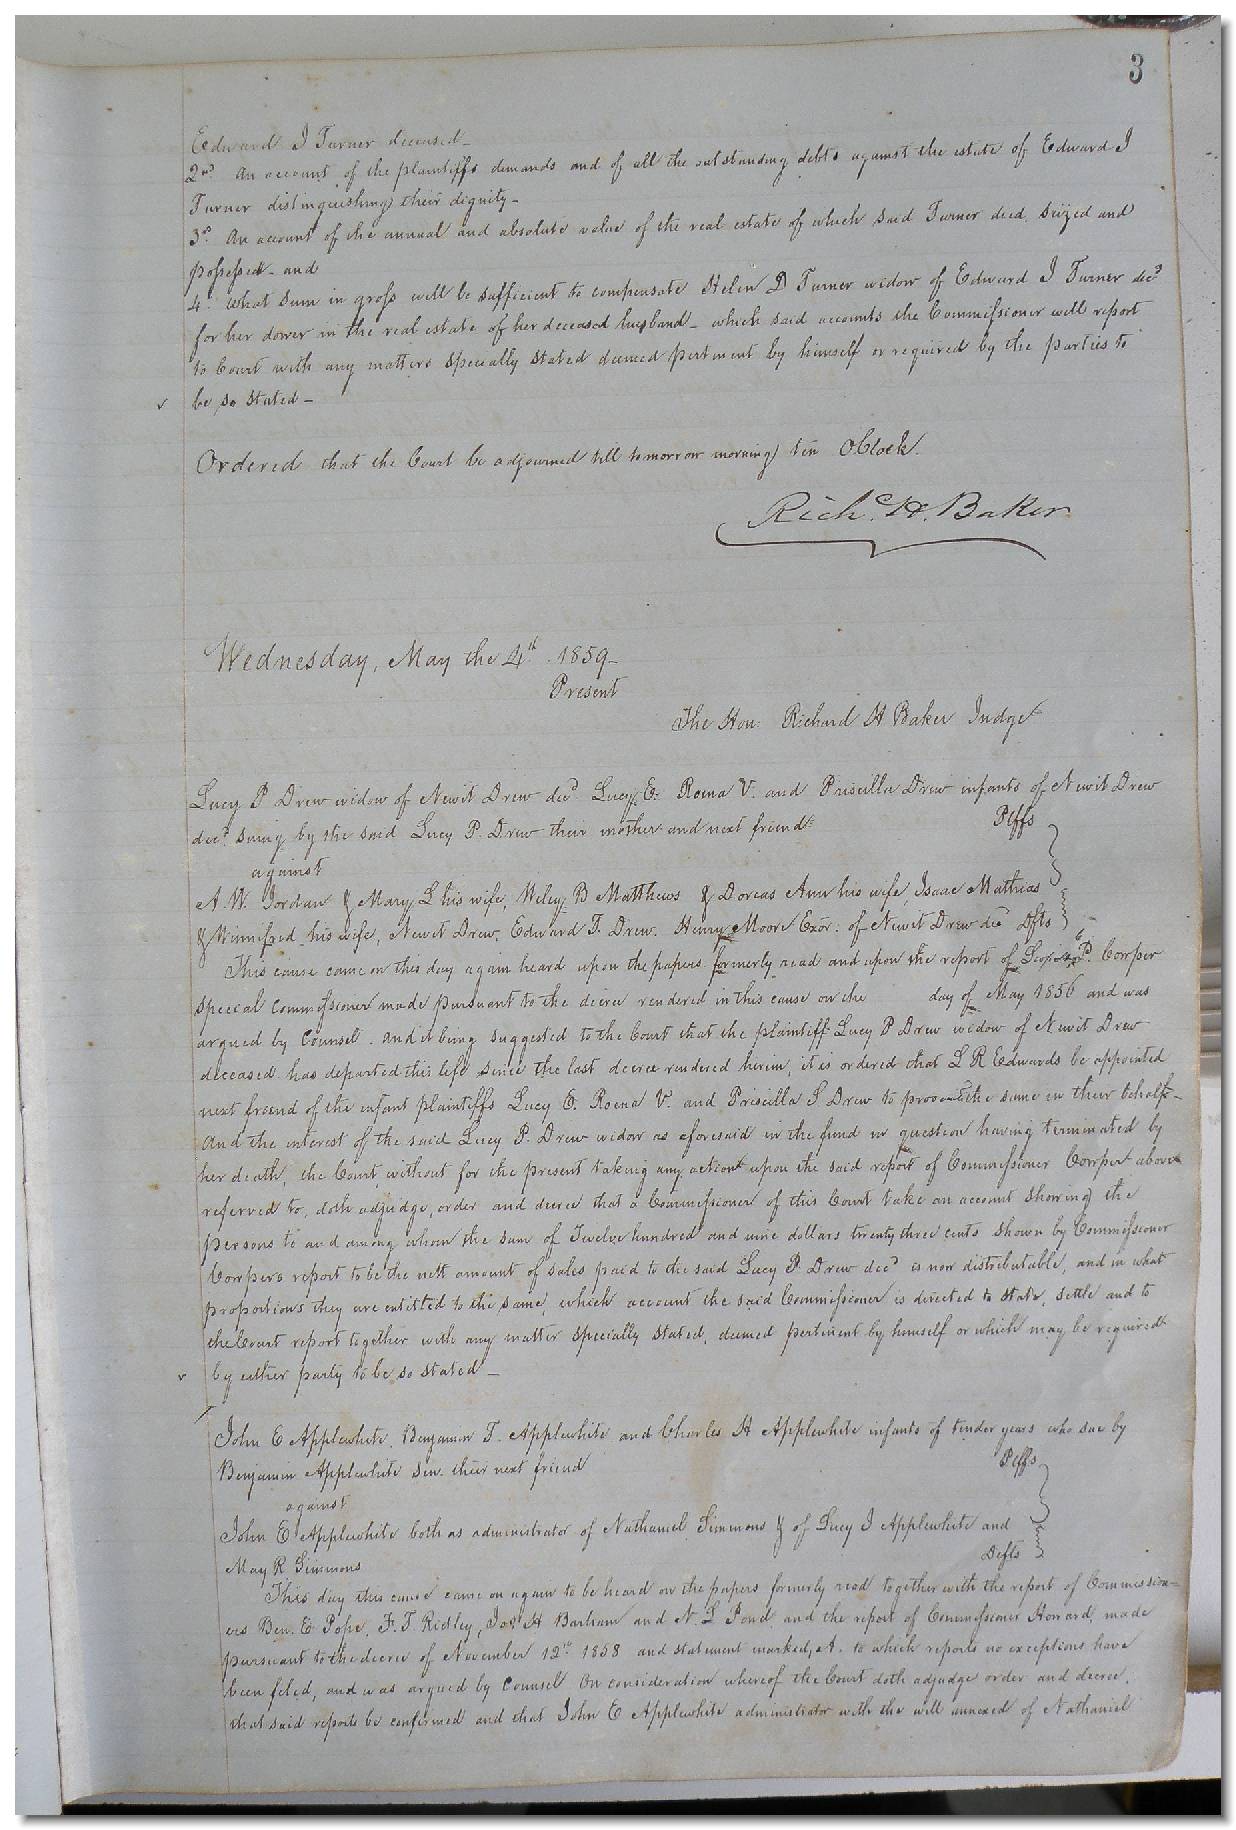 3
Edward I Turner deceased_
2nd An account of the plaintiffs demands and of all the outstanding debts against the estate of Edward I
Turner distinguishing their dignity_
3rd An account of the annual and absolute value of the real estate of which said Turner died seized and
possessed_ and
4. What sum in gross will be sufficient to compensate Helen D Turner widow of Edward I Turner decd
for her dower in the real estate of her deceased husband_ which said accounts the Commissioner will report
to Court with any matters specially stated deemed pertinent by himself or required by the parties to
be so stated_
Ordered that the Court be adjourned till tomorrow morning ten OClock.
Richd. H. Baker
Wednesday, May the 4th 1859_
Present
The Hon: Richard H Baker Judge
Lucy P Drew widow of Newit Drew decd Lucy E. Roena V. and Priscilla Drew infants of Newit Drew
decd suing by the said Lucy P. Drew their mother and next friend Plffs
against
A. W. Jordan & Mary L his wife, Wiley B Matthews & Dorcas Ann his wife, Isaac Mathias
& Winnifred his wife, Newit Drew, Edward T. Drew. Henry Moore Exor: of Newit Drew decd Dfts
This cause came on this day again heard upon the papers formerly read and upon the report of P. Corrper
special Commissioner made pursuant to the decree rendered in this cause on the day of May 1856 and was
argued by Counsel. and it being suggested to the Court that the plaintiff Lucy P Drew widow of Newit Drew
deceased has departed this life since the last decree rendered herein, it is ordered that L R Edwards be appointed
next friend of the infant plaintiffs Lucy E. Roena V. and Priscilla S Drew to the same in their behalf_
And the interest of the said Lucy P. Drew widow as aforesaid in the fund in question having terminated by
her death, the Court without for the present taking any action upon the said report of Commissioner Corrper above
referred to, doth adjudge, order and decree that a Commissioner of this Court take an account showing the
persons to and among whom the sum of Twelve hundred and nine dollars twenty three cents shown by Commissioner
Corrpers report to be the nett amount of sales paid to the said Lucy P. Drew decd is now distributable, and in what
proportions they are entitled to the same, which account the said Commissioner is directed to state, settle and to
the Court report together with any matter specially stated, deemed pertinent by himself or which may be required
by either party to be so stated_
John E Applewhite, Benjamin F. Applewhite and Charles H Applewhite infants of tender years who sue by
Benjamin Applewhite Sen. their next friend Plffs
against
John E Applewhite both as administrator of Nathaniel Simmons & of Lucy I Applewhite and
May R Simmons Defts
This day this cause came on again to be heard on the papers formerly read together with the report of Commission-
ers Ben. E Pope, F. T. Ridley, Jas. H Barham and N. L Pond and the report of Commissioner Howard, made
pursuant to the decree of November 12th 1858 and statement marked, A. to which reports no exceptions have
been filed, and was argued by Counsel On consideration whereof the Court doth adjudge order and decree,
that said reports be confirmed and that John E Applewhite administrator with the will annexed of Nathaniel